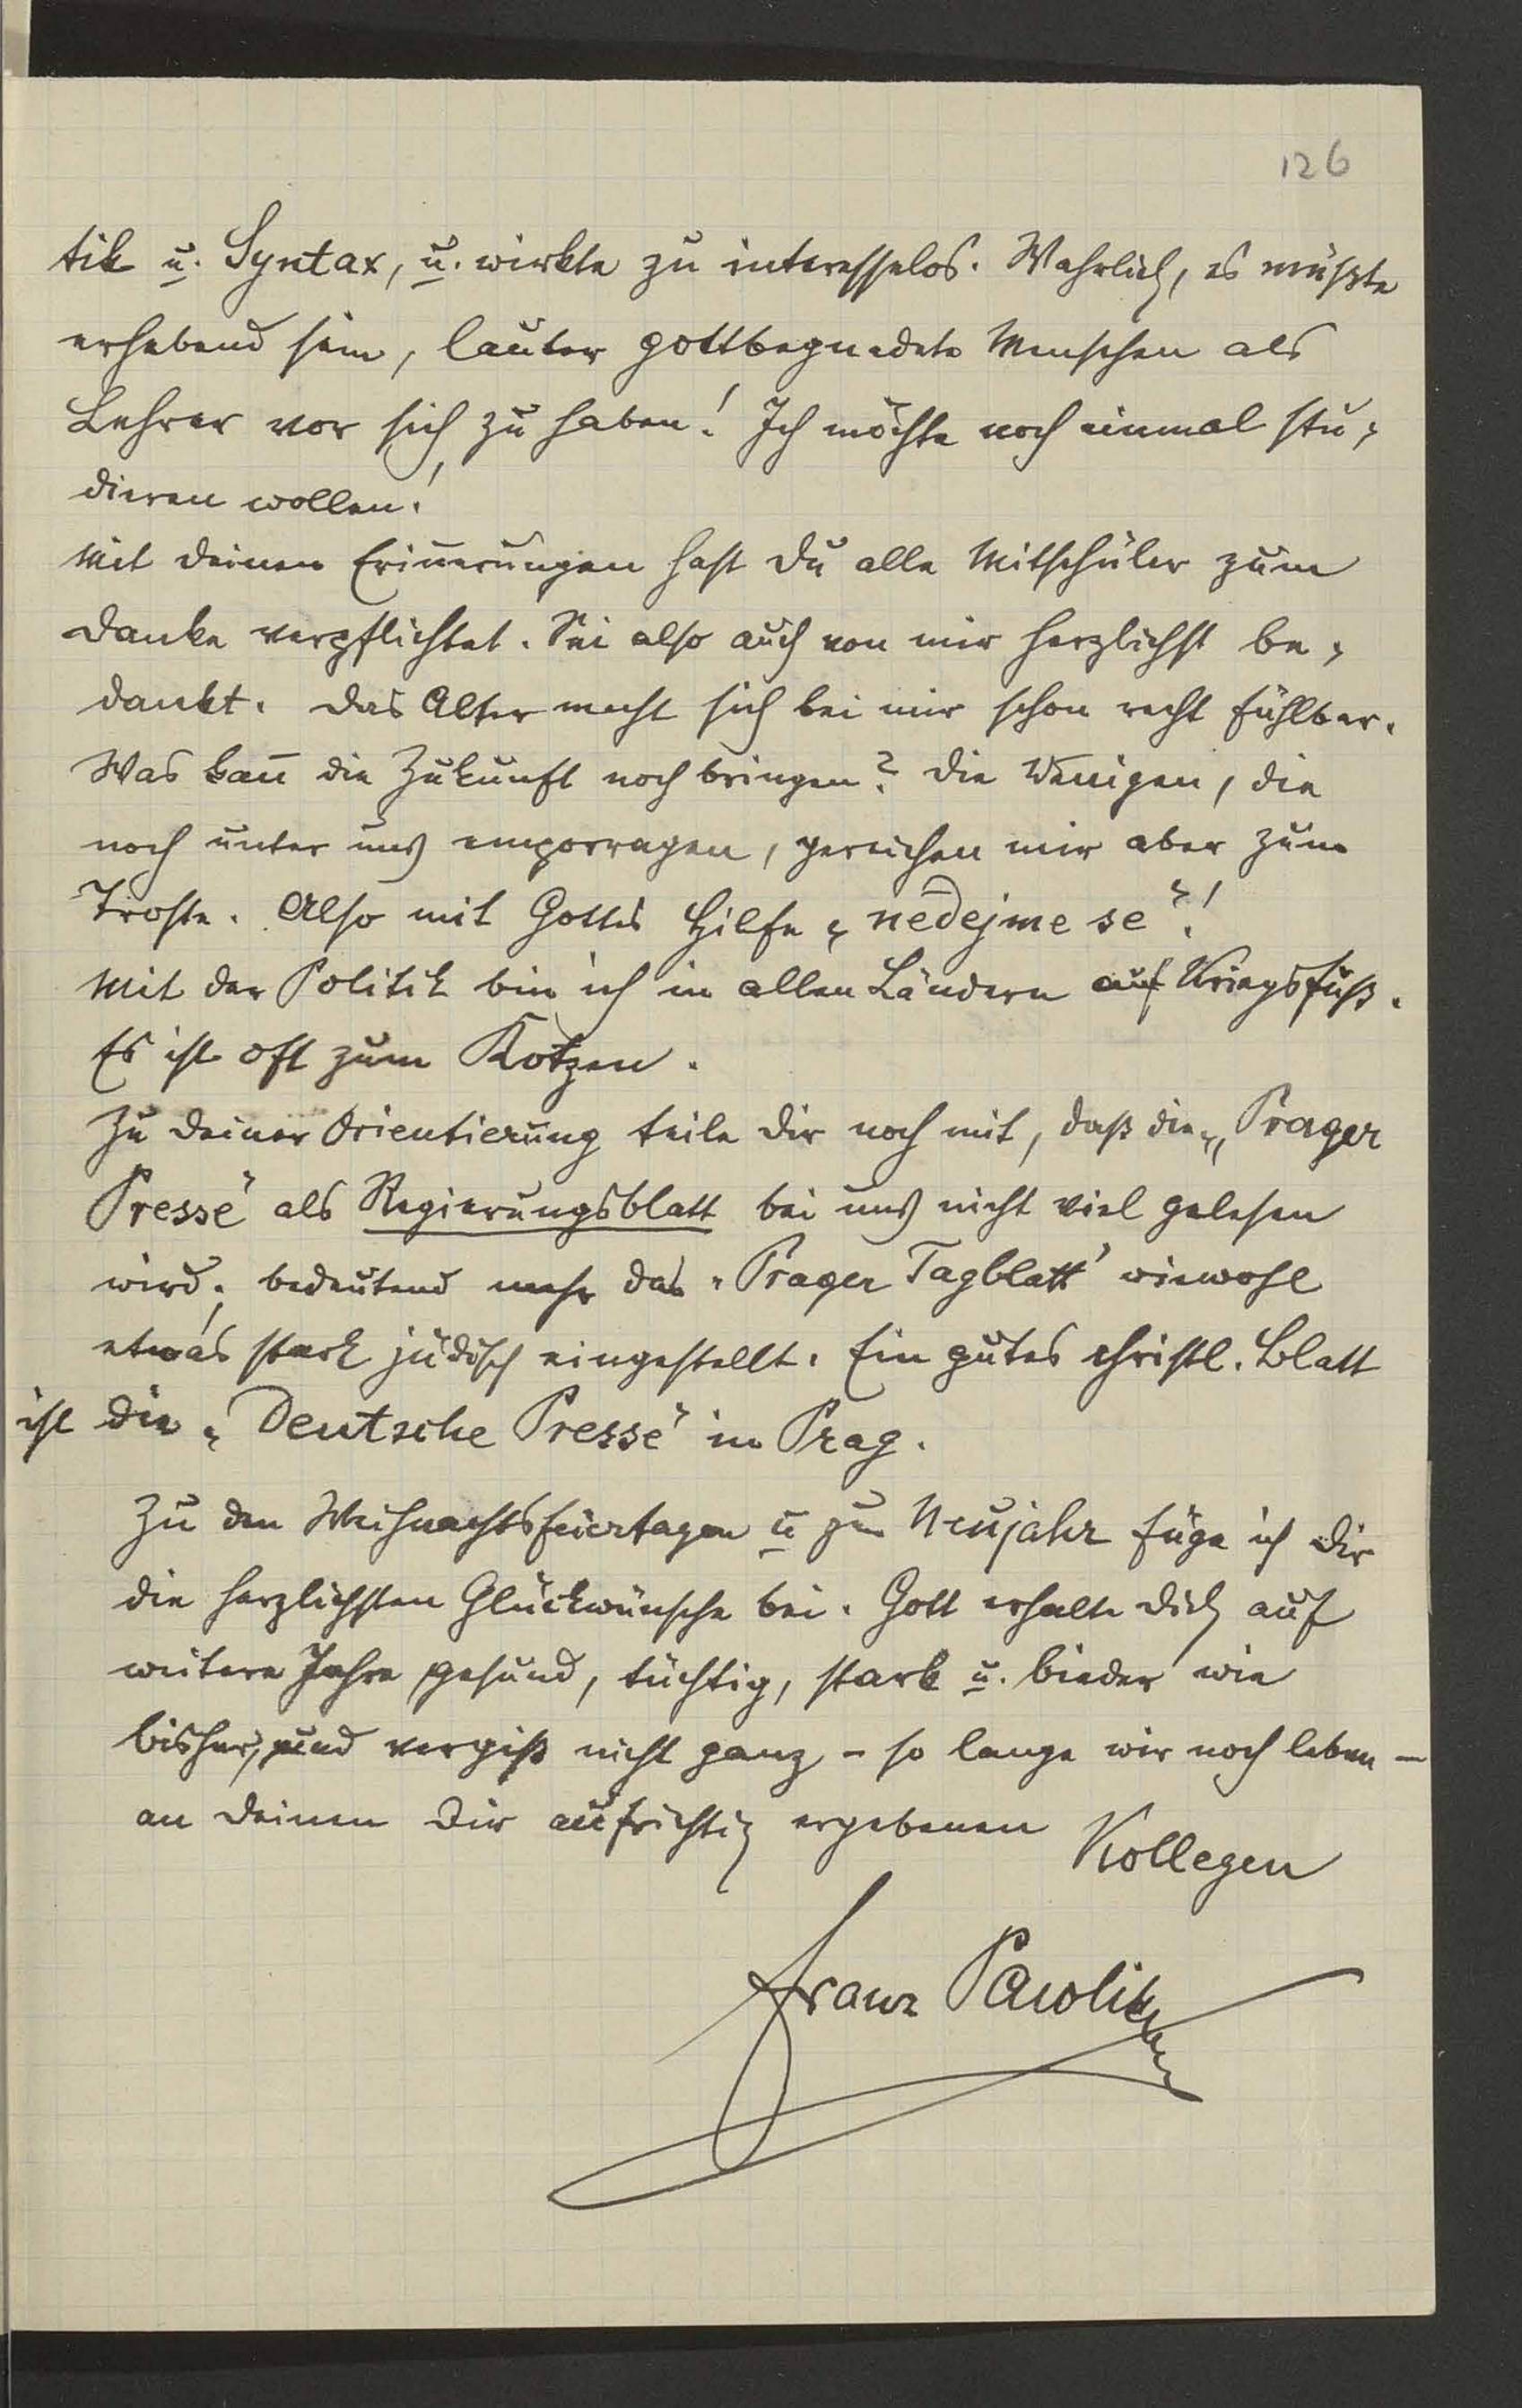 126
tik u. Syntax, u. wirkte zu interesselos. Wahrlich, es müßte
erhebend sein, lauter gottbegnadete Menschen als
Lehrer vor sich zu haben! Ich möchte noch einmal stu-
dieren wollen!
Mit deinen Erinerungen hast du alle Mitschüler zum
Danke verpflichtet. Sei also auch von mir herzlichst be-
dankt. Das Alter macht sich bei mir schon recht fühlbar.
Was kan̄ die Zukunft noch bringen? Die Wenigen, die
noch unter uns emporragen, gereichen mir aber zum
Troste. Also mit Gottes Hilfe „nedejme se"!
Mit der Politik bin ich in allen Ländern auf Kriegsfuß.
Es ist oft zum Kotzen.
Zu deiner Orientierung teile dir noch mit, daß die „Prager
Presse" als Regierungsblatt bei uns nicht viel gelesen
wird; bedeutend mehr das „Prager Tagblatt" wiewohl
etwas stark jüdisch eingestellt. Ein gutes christl. Blatt
ist die „Deutsche Presse" in Prag.
Zu den Weihnachtsfeiertagen u zum Neujahr füge ich dir
die herzlichsten Glückwünsche bei. Gott erhalte dich auf
weitere Jahre gesund, tüchtig, stark u. bieder wie
bisher, und vergiß nicht ganz - so lange wir noch leben -
an deinen dir aufrichtig ergebenen Kollegen
Franz Pawlik